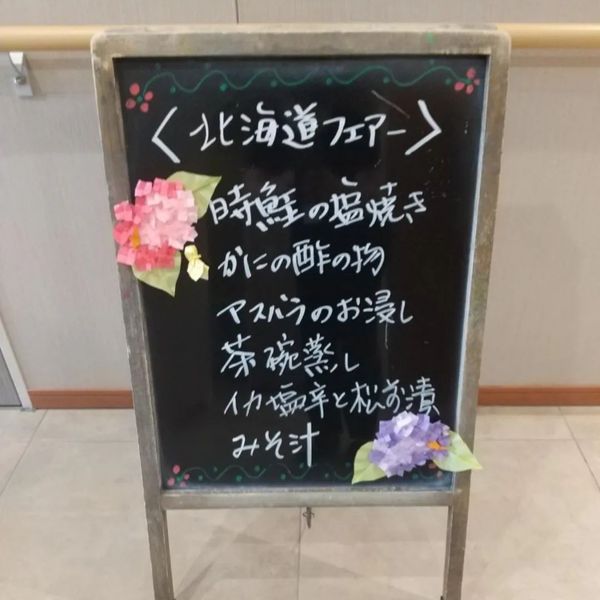 〈北海道フェアー〉
時鮭の塩焼き
かにの酢の物
アスパラのお浸し
茶碗蒸し
イカ塩辛と松前漬
みそ汁